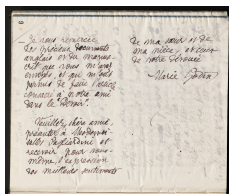 Je vous remercie
des précieux documents
anglais et du manus-
crit que vous m'avez
envoyés, et qui m'ont
permis de faire l'article
consacré à notre ami
dans le "Devoir".
Veuillez, chère amie,
présenter à Mesdemoi-
selles
recevoir pour vous-
même, l'expression
des meilleurs sentiments
de ma sœur et de
ma nièce, et ceux
de votre dévouée
Marie